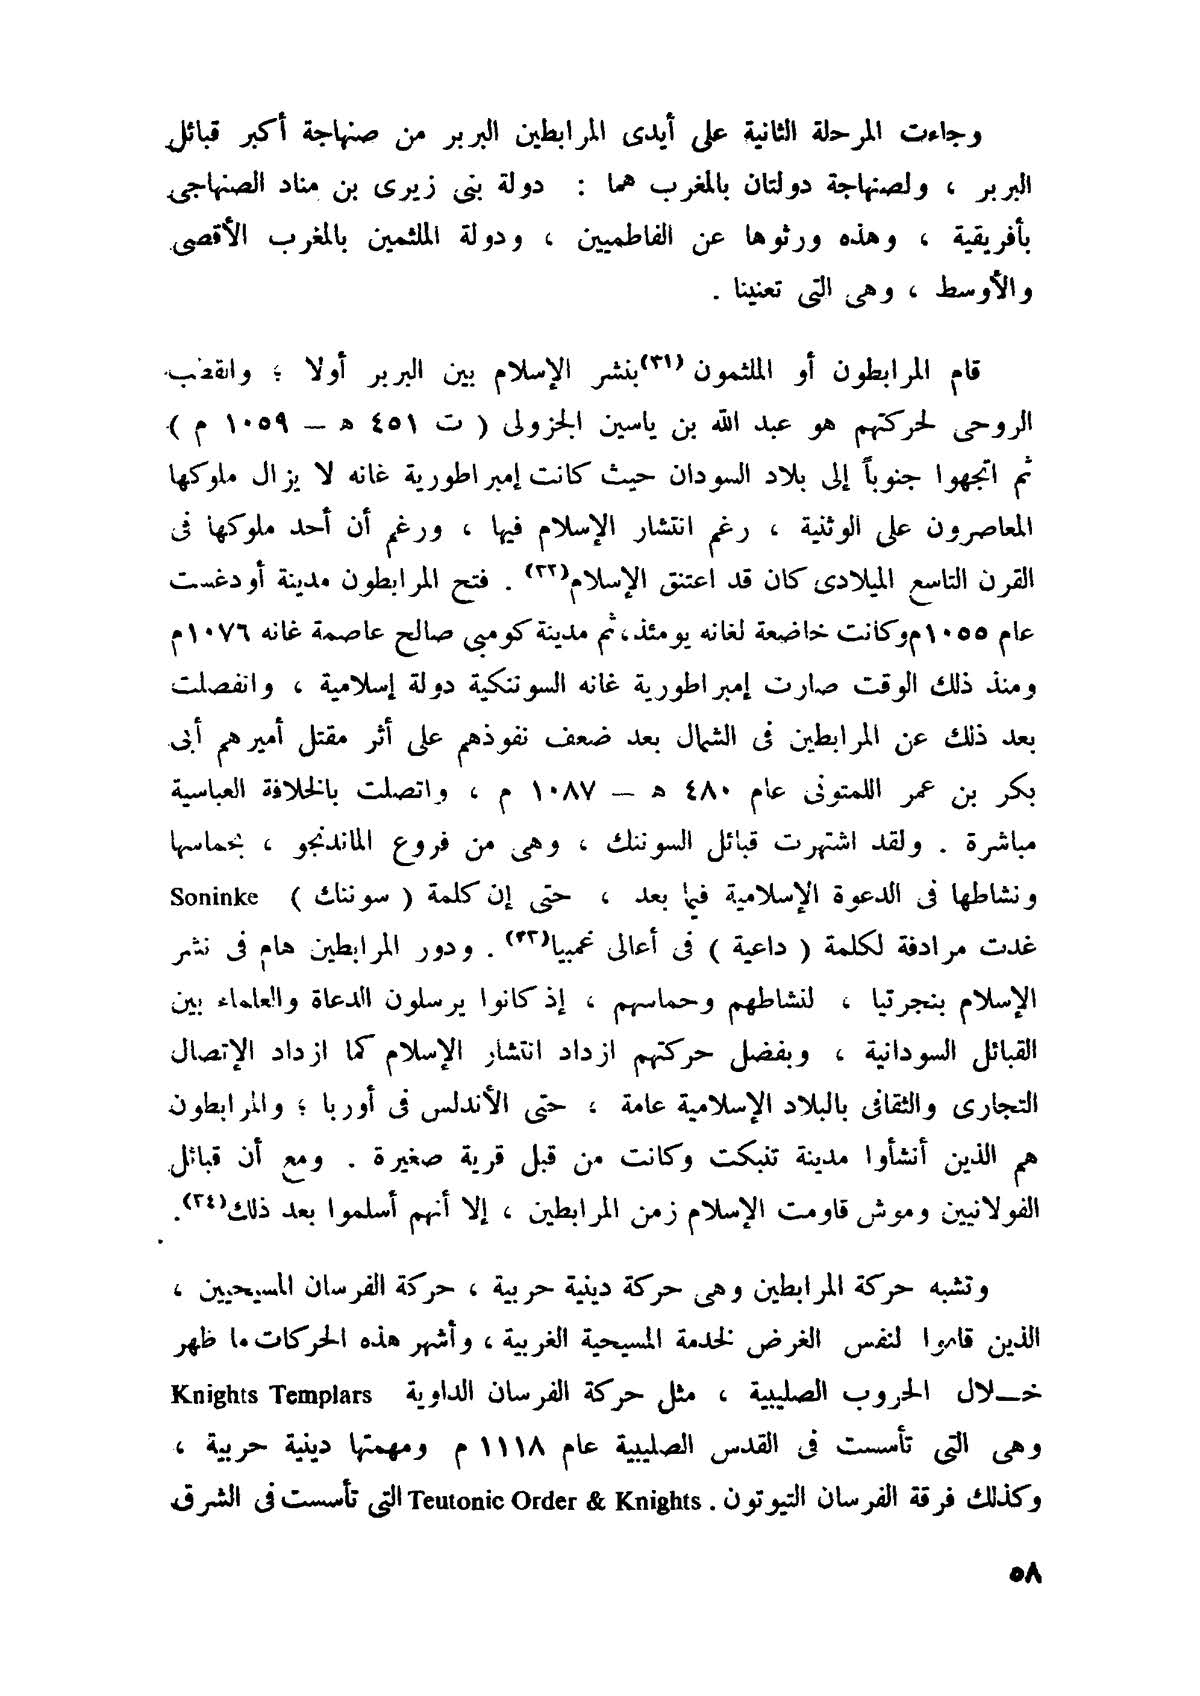 وجاءت المرحلة الثانية على أيدى المرابطين البربر من صنهاجة أكبر قبائل
البربر ، ولصنهاجة دولتان بالمغرب هما : دولة بنى زيرى بن مناد الصنهاجى
بأفريقية ، وهذه ورثوها عن الفاطميين ، ودولة الملثمين بالمغرب الأقصى
والأوسط ، وهى التى تعنينا .
قام المرابطون أو الملثمون (٣١) بنشر الإسلام بين البربر أولا ؛ والقطب
الروحى لحركتهم هو عبد الله بن ياسين الجزولى ( ت ٤٥١ ه – ١٠٥٩ م )
ثم اتجهوا جنوباً إلى بلاد السودان حيث كانت إمبراطورية غانه لا يزال ملوكها
المعاصرون على الوثنية ، رغم انتشار الإسلام فيها ، ورغم أن أحد ملوكها فى
القرن التاسع الميلادى كان قد اعتنق الإسلام(٣٢) . فتح المرابطون مدينة أودغست
عام ١٠٥٥م وكانت خاضعة لغانه يومئذ، ثم مدينة كومبى صالح عاصمة غانه ١٠٧٦م
ومنذ ذلك الوقت صارت إمبراطورية غانه السوننكية دولة إسلامية ، وانفصلت
بعد ذلك عن المرابطين فى الشمال بعد ضعف نفوذهم على أثر مقتل أميرهم أبى
بكر بن عمر اللمتونى عام ٤٨٠ ه – ١٠٨٧ م ، واتصلت بالخلافة العباسية
مباشرة . ولقد اشتهرت قبائل السوننك ، وهى من فروع الماندنجو ، بحماسها
ونشاطها فى الدعوة الإسلامية فيما بعد ، حتى إن كلمة ( سوننك ) Soninke
غدت مرادفة لكلمة ( داعية ) فى أعالى غمبيا(٣٣) . ودور المرابطين هام فى نشر
الإسلام بنجرتيا ، لنشاطهم وحماسهم ، إذ كانوا يرسلون الدعاة والعلماء بين
القبائل السودانية ، وبفضل حركتهم ازداد انتشار الإسلام كما ازداد الإتصال
التجارى والثقافى بالبلاد الإسلامية عامة ، حتى الأندلس فى أوربا ؛ والمرابطون
هم الذين أنشأوا مدينة تنبكت وكانت من قبل قرية صغيرة . ومع أن قبائل
الفولانيين وموش قاومت الإسلام زمن المرابطين ، إلا أنهم أسلموا بعد ذلك(٣٤).
وتشبه حركة المرابطين وهى حركة دينية حربية ، حركة الفرسان المسيحيين ،
الذين قاموا لنفس الغرض لخدمة المسيحية الغربية ، وأشهر هذه الحركات ما ظهر
خـــلال الحروب الصليبية ، مثل حركة الفرسان الداوية Knights Templars
وهى التى تأسست فى القدس الصليبية عام ١١١٨ م ومهمتها دينية حربية ،
وكذلك فرقة الفرسان التيوتون . Teutonic Order & Knights التى تأسست فى الشرق
٥٨